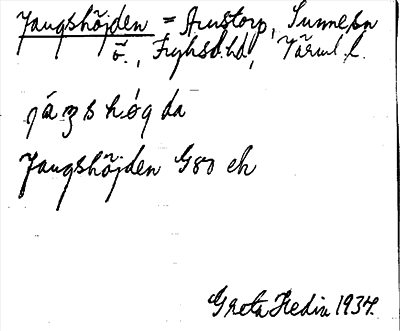 Jangshöjden = Arnstorp, Sunne sn
ö., Fryksd. hd, Värml. l.
jáŋshǿgda
Jangshöjden G80 ek
Greta Hedin 1934.